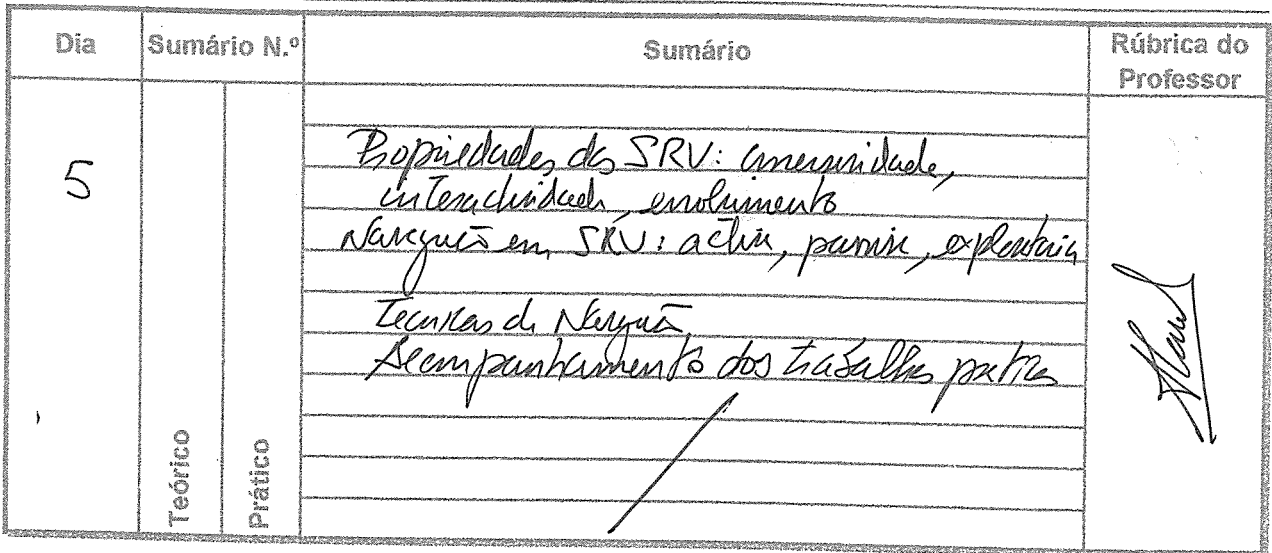 Dia
Sumário N.º
Sumário
Rúbrica do
Professor
5
Propriedades dos SRV: imersividade,
interactividade, envolvimento
Navegação em SRV: activa, passiva, exploratória
Técnicas de Navegação
Acompanhamento dos trabalhos práticos
Teórico
Prático